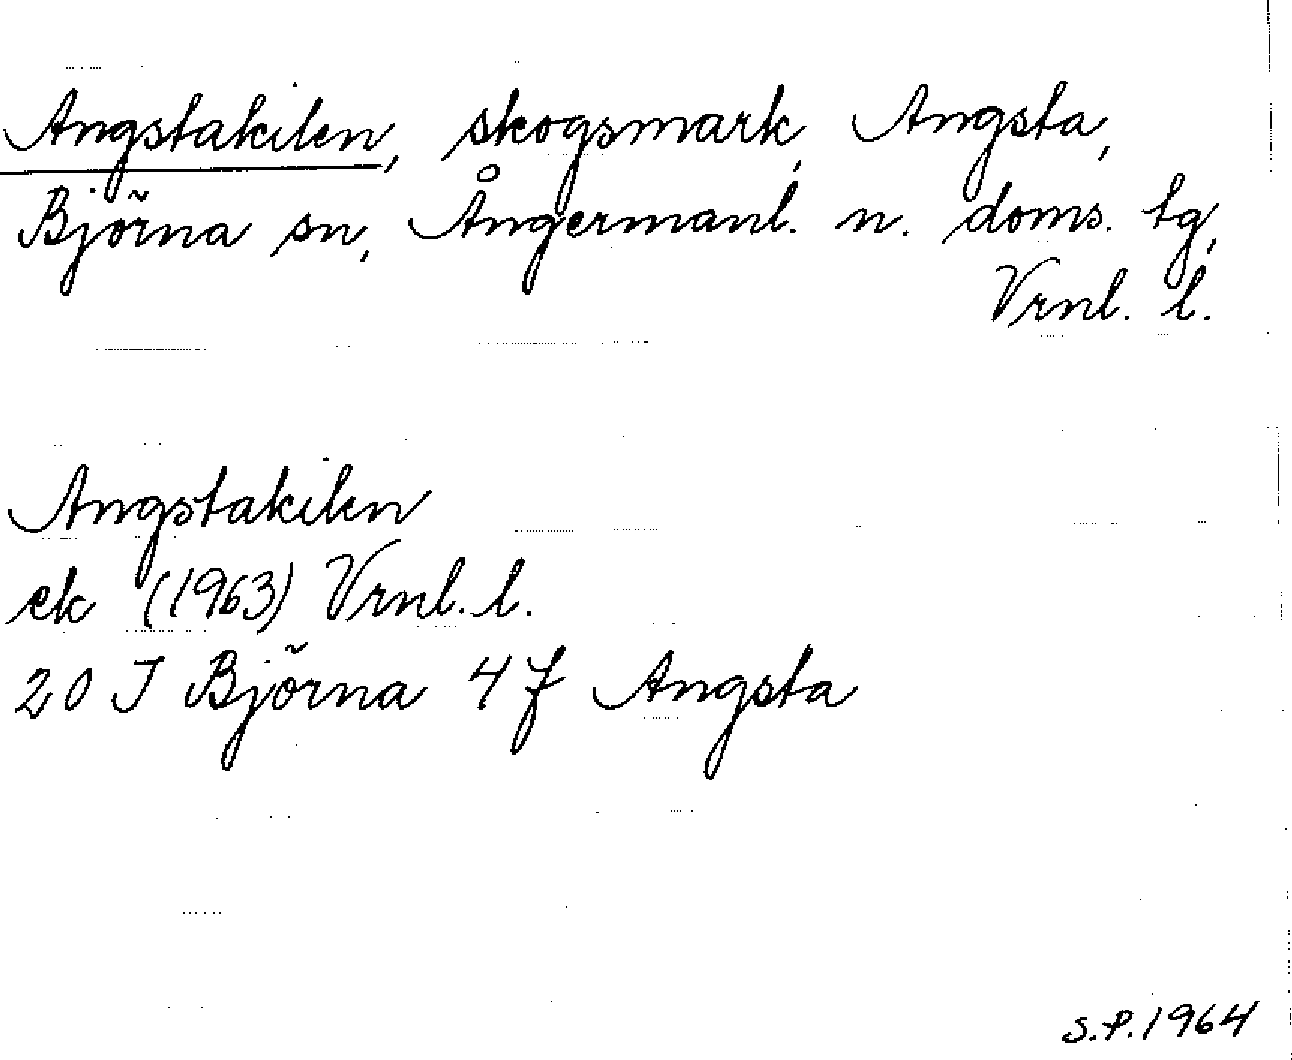 Angstakilen, skogsmark, Angsta,
Björna sn, Ångermanl. n. doms. tg,
Vrnl. l.
Angstakilen
ek (1963) Vrnl. l.
20 J Björna 4 f Angsta
S.P. 1964